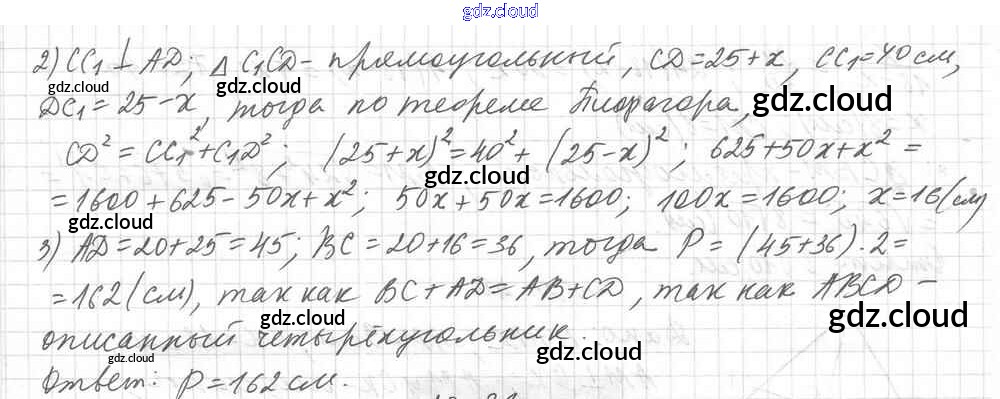 gdz.cloud
gdz.cloud
2) CC₁ ⊥ AD; △ C₁CD – прямоугольный, CD = 25 + x, CC₁ = 40 см,
gdz.cloud
DC₁ = 25 - x, тогда по теореме Пифагора,
gdz.cloud
gdz.cloud
CD² = CC₁² + C₁D²; (25 + x)² = 40² + (25 - x)²; 625 + 50x + x² =
gdz.cloud
= 1600 + 625 - 50x + x²; 50x + 50x = 1600; 100x = 1600; x = 16 (см)
gdz.cloud
3) AD = 20 + 25 = 45; BC = 20 + 16 = 36, тогда P = (45 + 36) · 2 =
= 162 (см), так как BC + AD = AB + CD, так как ABCD –
gdz.cloud
gdz.cloud
описанный четырёхугольник.
gdz.cloud
gdz.cloud
Ответ: P = 162 см.